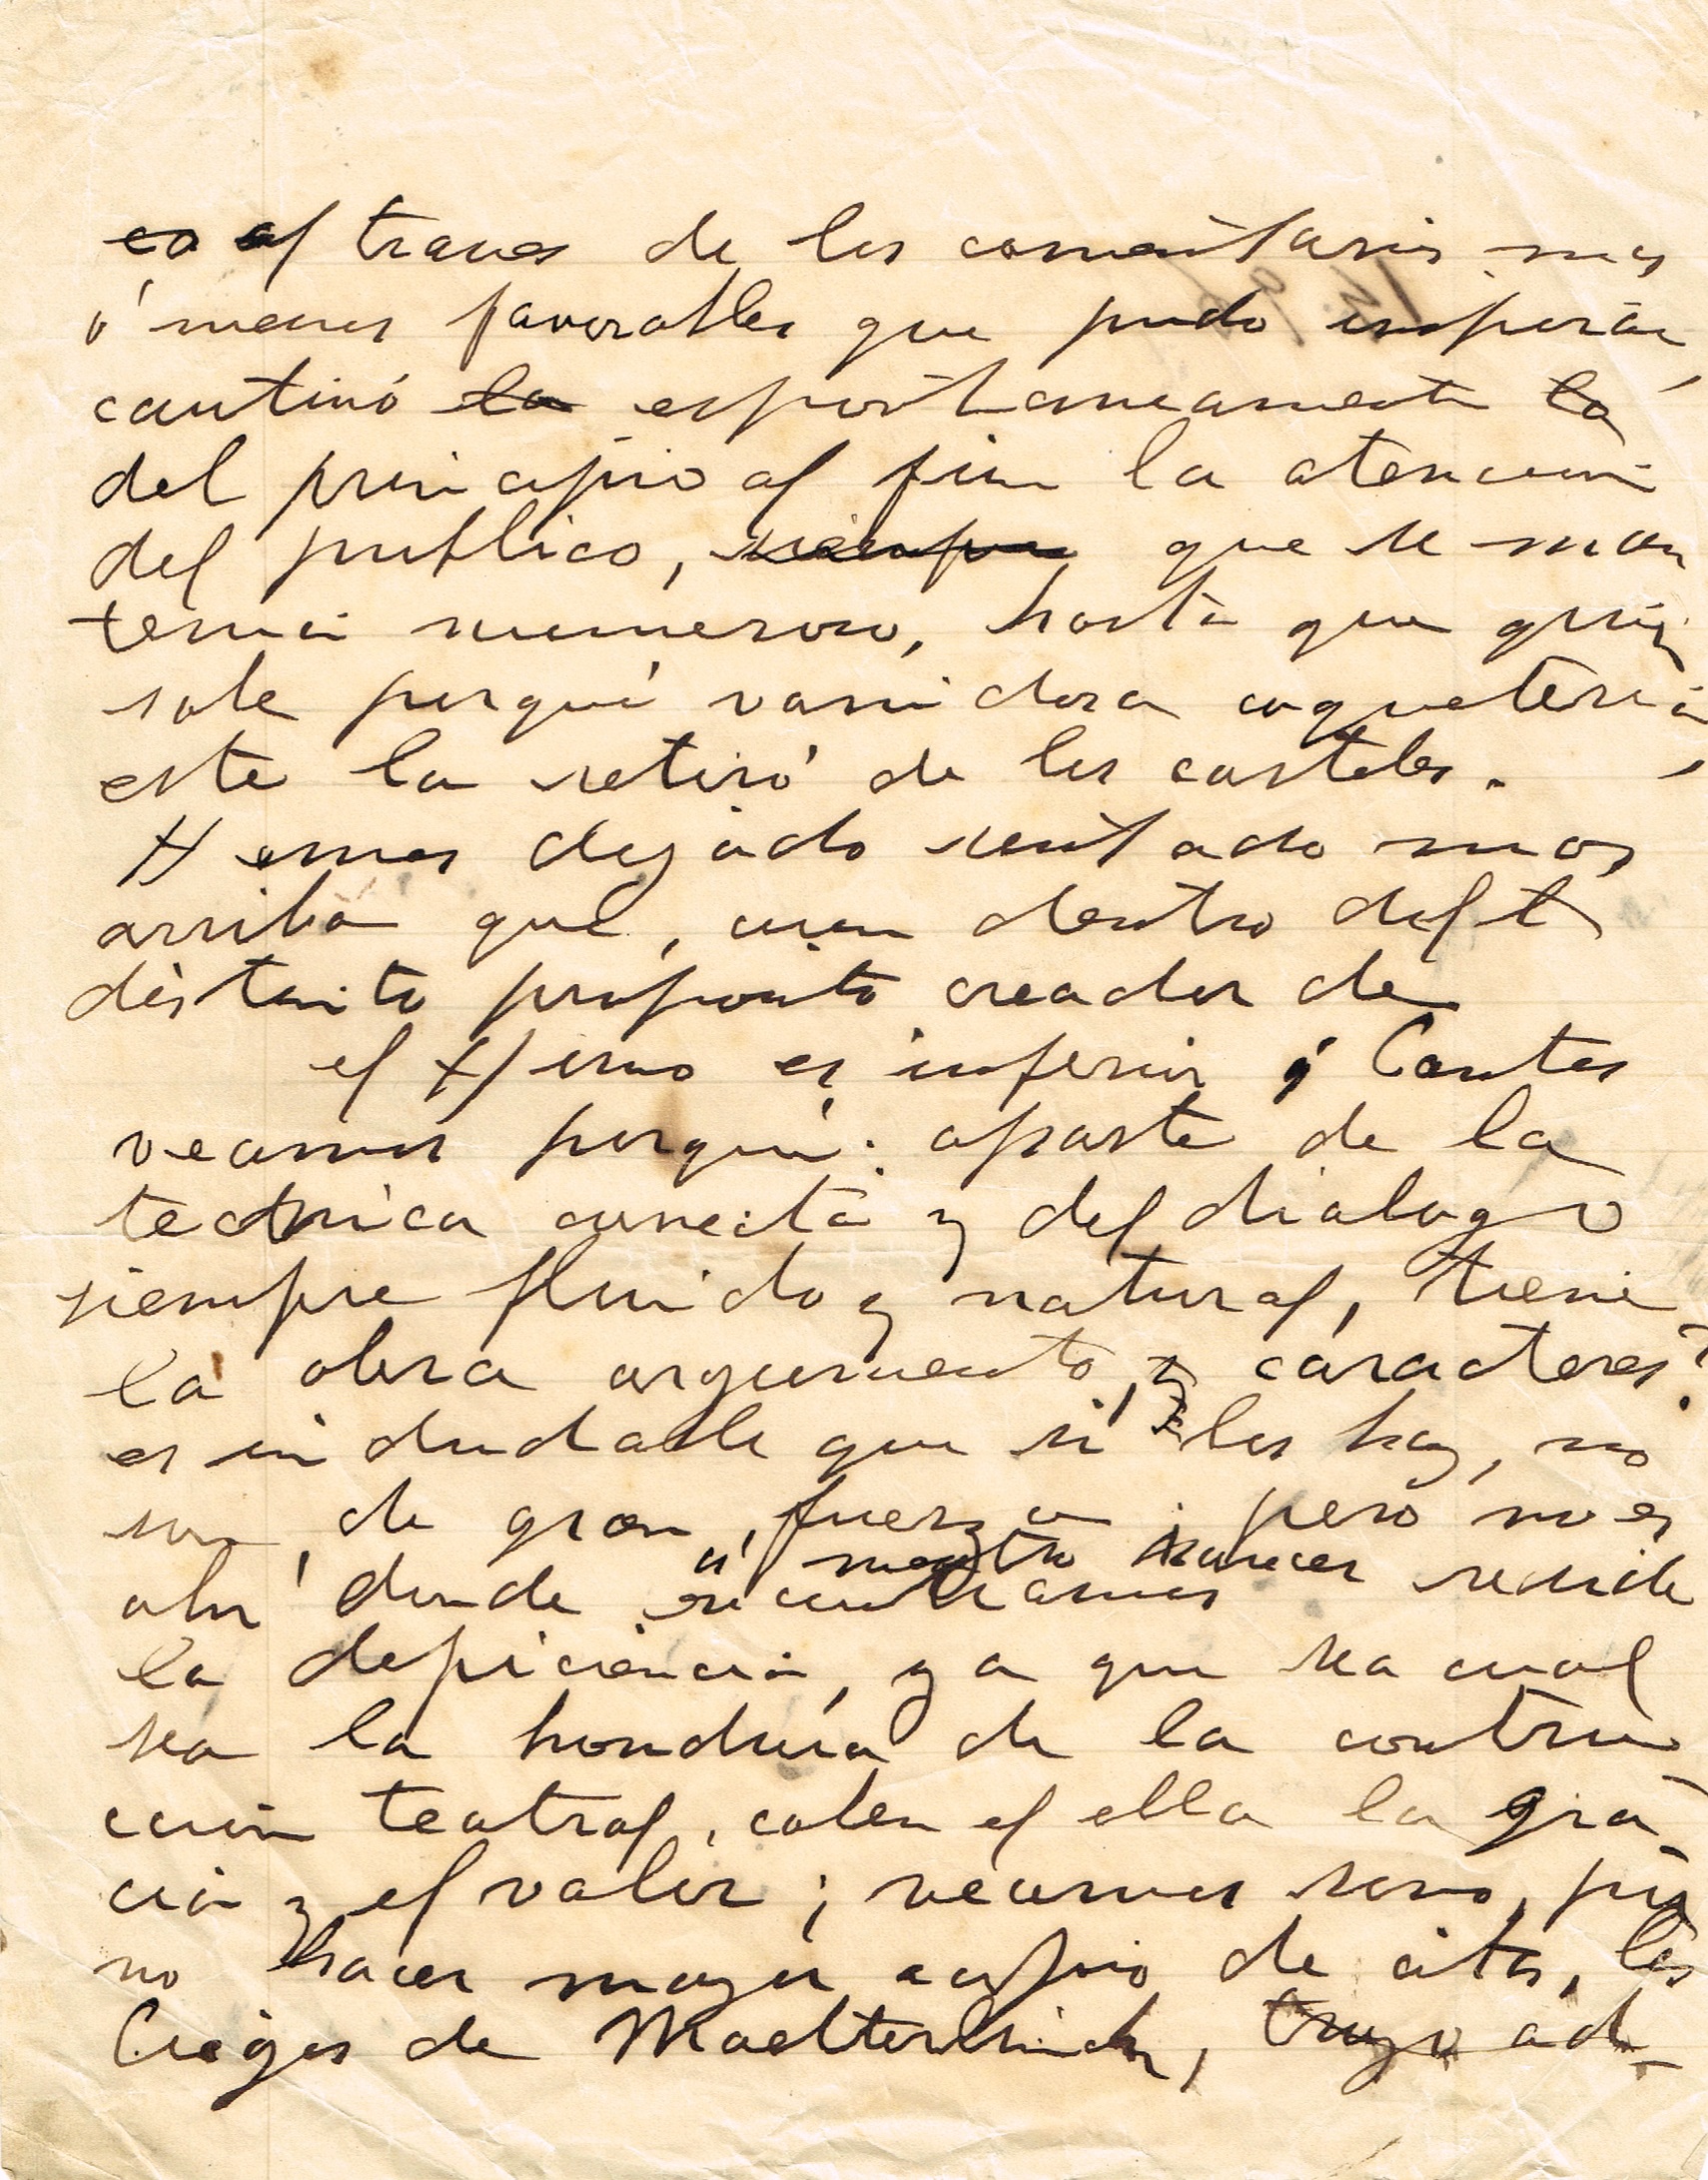 al traves de los comentarios mas
ó menos favorables que pudo inspirar,
cautivó espontaneamente
del principio al fin la atencion
del publico, siempre que se man
tenia numeroso, hasta que quien
sabe porqué vanidosa coqueteria
este la retiró de los carteles.
Hemos dejado sentado mas
arriba que, aun dentro del
distinto proposito creador de
el Himno es inferior á Cantes
veamos porqué: aparte de la
tecnica correcta y del dialogo
siempre fluido y natural, tiene
la obra argumento, y caracteres?
es indudable que si los hay, no
son, de gran fuerza; pero no es
á nuestro parecer reside
ahi donde encontramos
la deficiencia, ya que sea cual
sea la hondura de la contru
ccion teatral, caben el ella la gra-
cia y el valor; veamos sino, por
no hacer mayor acopio de citas, los
Ciegos de Maelterlinck, cuyo ad-